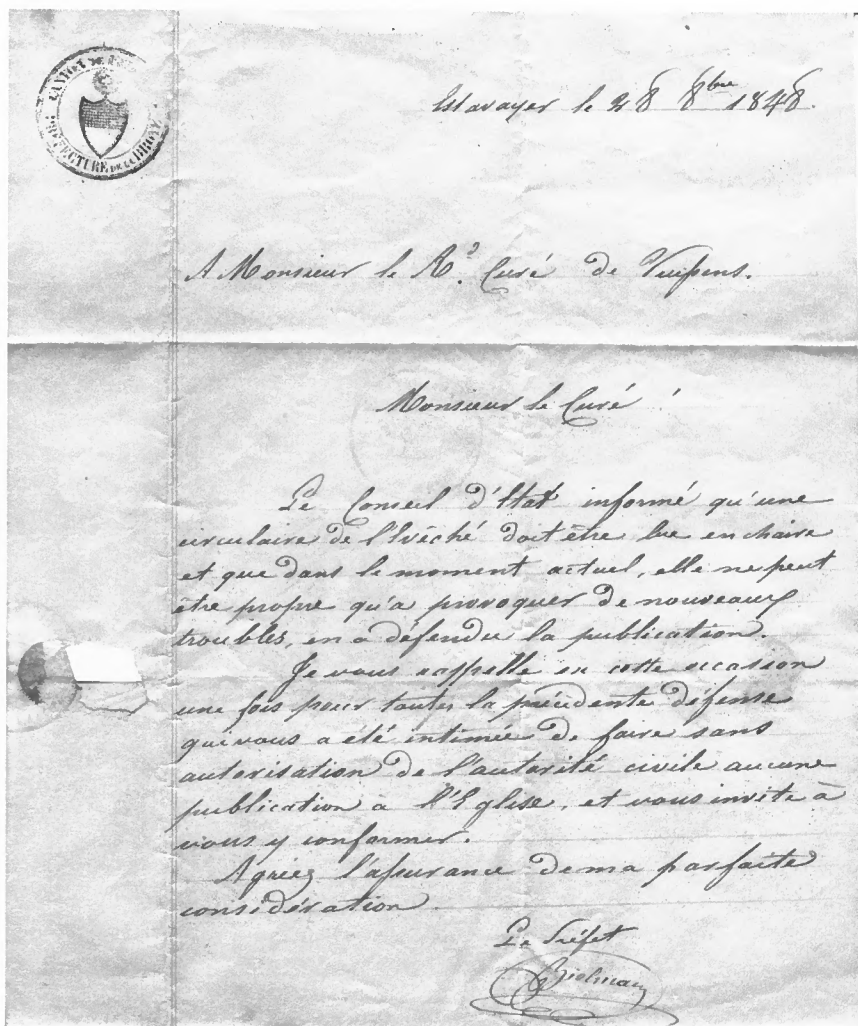 CANTON DE
PRÉFECTURE DE LA BROYE
Estavayer le 28 8bre 1848.
A Monsieur le Rd. Curé de Vuissens.
Monsieur le Curé !
Le Conseil d'Etat informé qu'une
circulaire de l'Evêché doit être lue en chaire
et que dans le moment actuel, elle ne peut
être propre qu'a provoquer de nouveaux
troubles, en a défendu la publication.
Je vous rappelle en cette occasion
une fois pour toutes la précédente défense
qui vous a été intimée de faire sans
autorisation de l'autorité civile aucune
publication à l'Eglise, et vous invite à
vous y conformer.
Agréez l'assurance de ma parfaite
considération.
Le Préfet